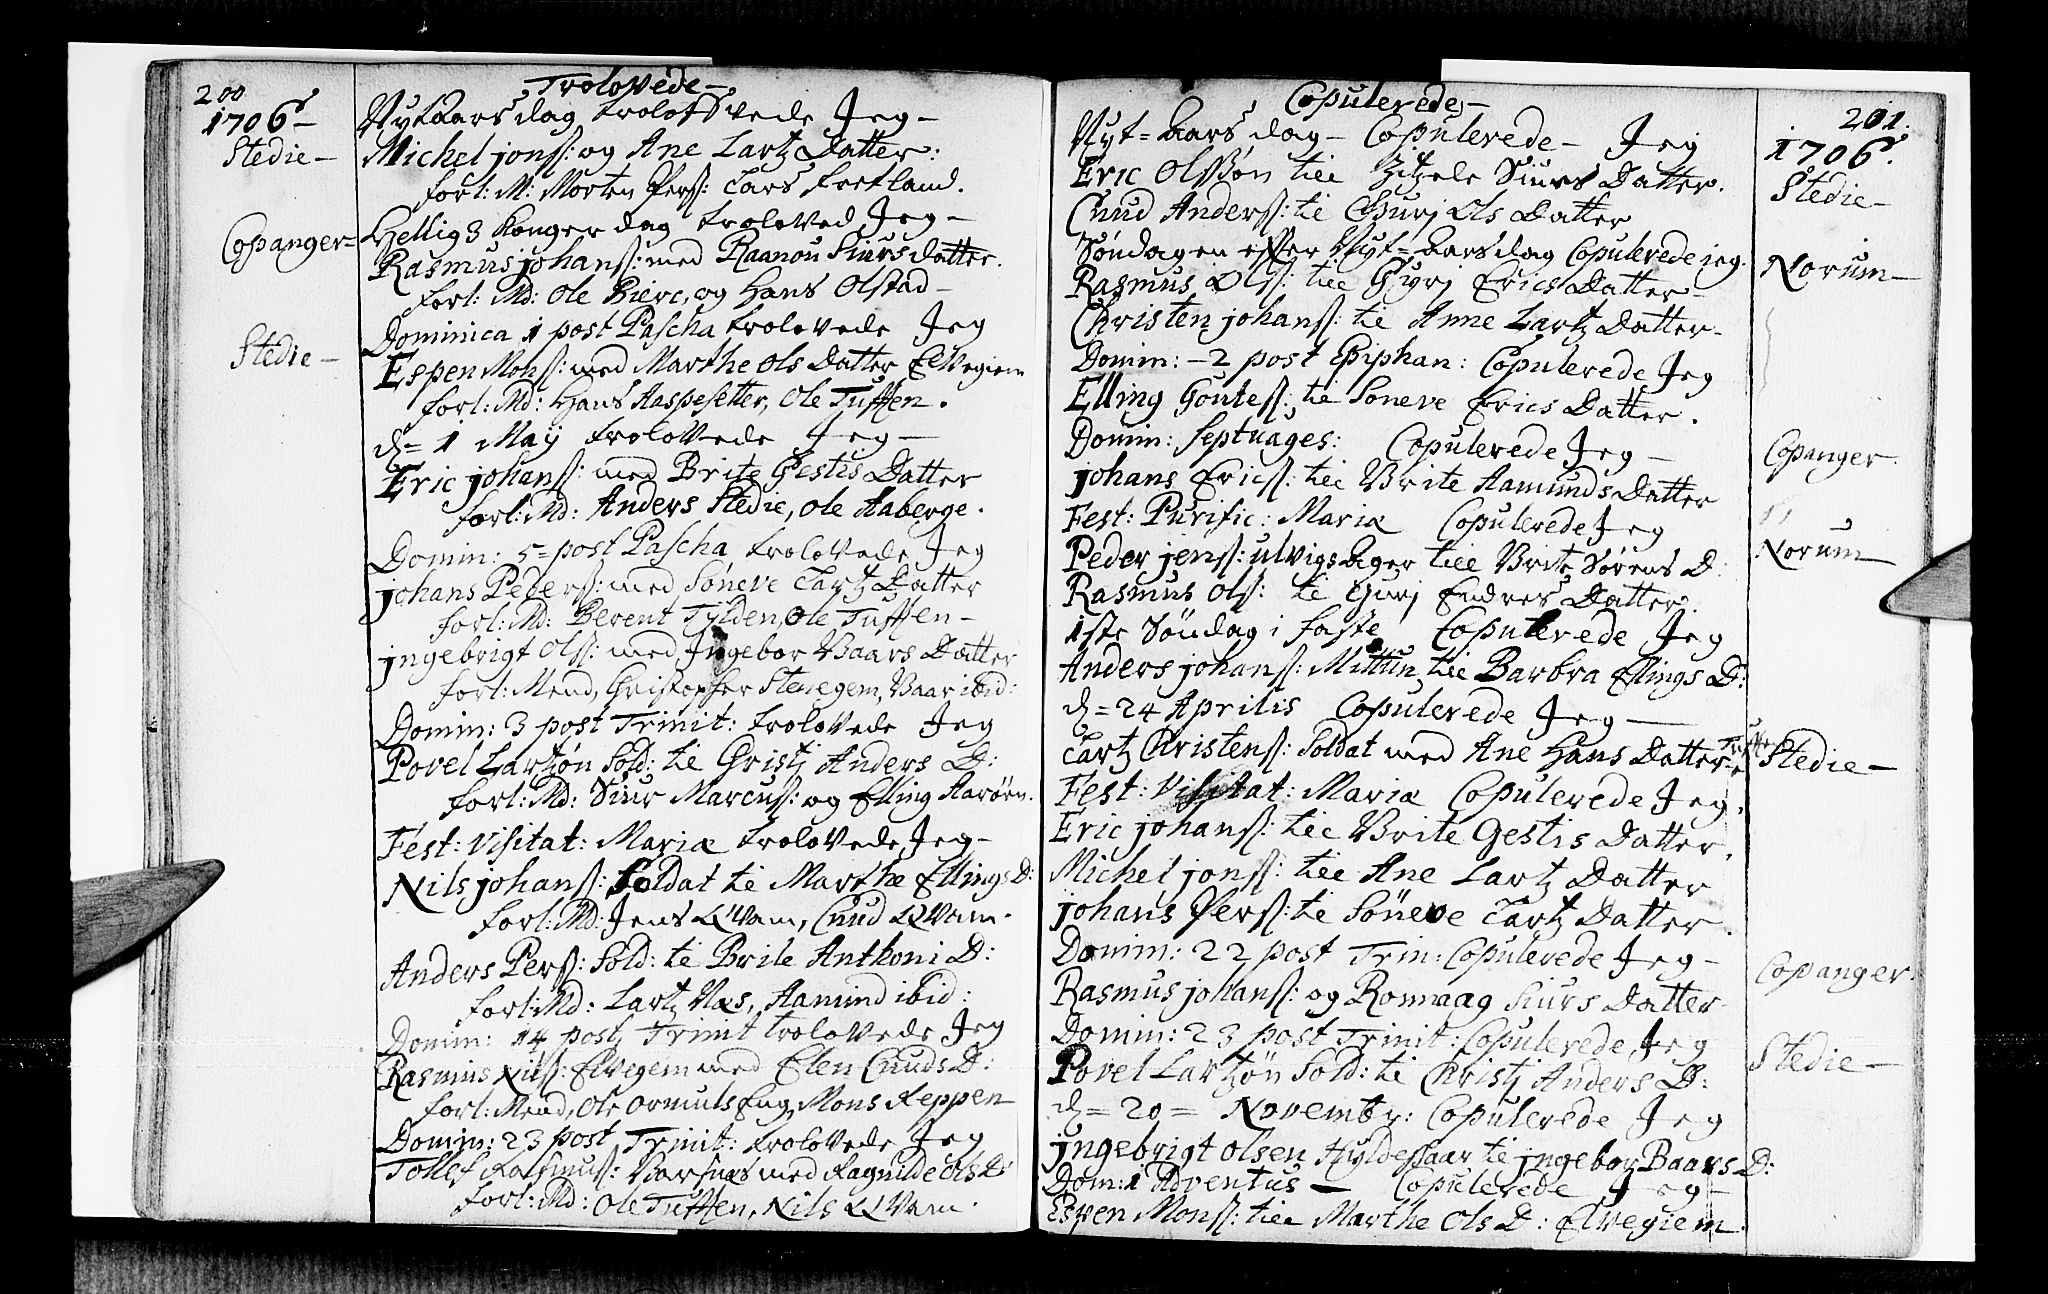 200
Trolovede-
1706-
Nyt Aars dag troloffvede Jeg-
Stedie-
Michel jonſ: og Ane Lartz Datter:
forl: M: Morten Perſ: Lars Fretland.
Copanger=
Hellig 3 Konger dag troloved Jeg-
Rasmus johanſ: med Raanou Siurs datter.
forl: Md: Ole Bierc, og Hans Olstad-
Dominica 1 post Pascha trolovede Jeg
Stedie-
Espen Monſ: med Marthe Ols Datter Elvegiem
forl: Md: Hans Aaspesetter, Ole Tufften.
d= 1 Maÿ trolovede Jeg-
Eric johanſ: med Brite Gestis Datter
forl: Md: Anders Stedie, Ole Aaberge.
Domin: 5= post Pascha trolovede Jeg
johans Pederſ: med Söneve Lartz Datter
forl: Md: Berent Tylden, Ole Tufften-
jngebrigt Olſ: med Jngebor Baars Datter
forl: Mend, Christopher Stenegem, Baar ibid:
Domin: 3 post Trinit: trolovede Jeg
Povel Lartzön Sold: til Christj Anders D:
forl: Md: Siur Marcuſ: og Elling Aaröen.
Fest: Visitat: Mariæ trolovede Jeg-
Nils johanſ: Soldat til Marthe Ellings D:
forl: Md: Jens Qvam, Cnud Qvam.
Anders Perſ: Sold: til Brite Anthoni D:
forl: Md: Lartz Næs, Aamund ibid:
Domin: 14 post Trinit trolovede Jeg
Rasmus Nilſ: Elvegem med Elen Cnuds D:
forl: Mend, Ole Ormuls Eng, Mons Reppen
Domin: 23 post Trinit: trolovede Jeg
Tollef Rasmuſ: Barsnæs med Ragnilde Ols D:
forl: Md: Ole Tufften, Nils Qvam.
201.
Copulerede-
1706.
Nyt= Aars dag- Copulerede- Jeg
Stedie-
Eric Olssön till Zitzele Siurs Datter.
Cnud Anderſ: til Gurj Ols Datter
Söndagen effter Nyt= Aarsdag Copulerede jeg.
Norum-
Rasmus Olſ: till Gyrj Erics Datter-
Christen johanſ: til Anne Lartz Datter-
Domin: -2 post Epiphan: Copulerede Jeg
Elling Gouteſ: til Söneve Erics Datter.
Domin: Septuages: Copulerede Jeg-
Copanger.
johans Ericſ: till Brite Aamunds Datter
Fest: Purific: Mariæ Copulerede Jeg
Norum-
Peder jenſ: ulvigs Ager till Brite Sörens D:
Rasmus Olſ: til Gurj Endres Datter.
1ste Söndag i faste Copulerede Jeg
Anders johanſ: Mittun till Barbra Ellings D:
d= 24 Aprilis Copulerede Jeg-
Lartz Christenſ: Soldat med Ane Hans Datter
Stedie-
Fest: Visitat: Mariæ Copulerede Jeg,
Eric johanſ: till Brite Gestis Datter,
Michel jonſ: till Ane Lartz Datter
johans Perſ: til Söneve Lartz Datter.
Domin: 22 post Trin: Copulerede Jeg-
Copanger.
Rasmus johanſ: og Ronnaag Siurs Datter-
Domin: 23 post Trinit: Copulerede Jeg
Stedie-
Povel Lartzön Sold: til Christj Anders D:
d= 20= Novembr: Copulerede Jeg
jngebrigt Olsen Huldeskaar til jngebor Baars D:
Dom: 1 Adventus- Copulerede Jeg-
Espen Monſ: till Marthe Ols D: Elvegiem.